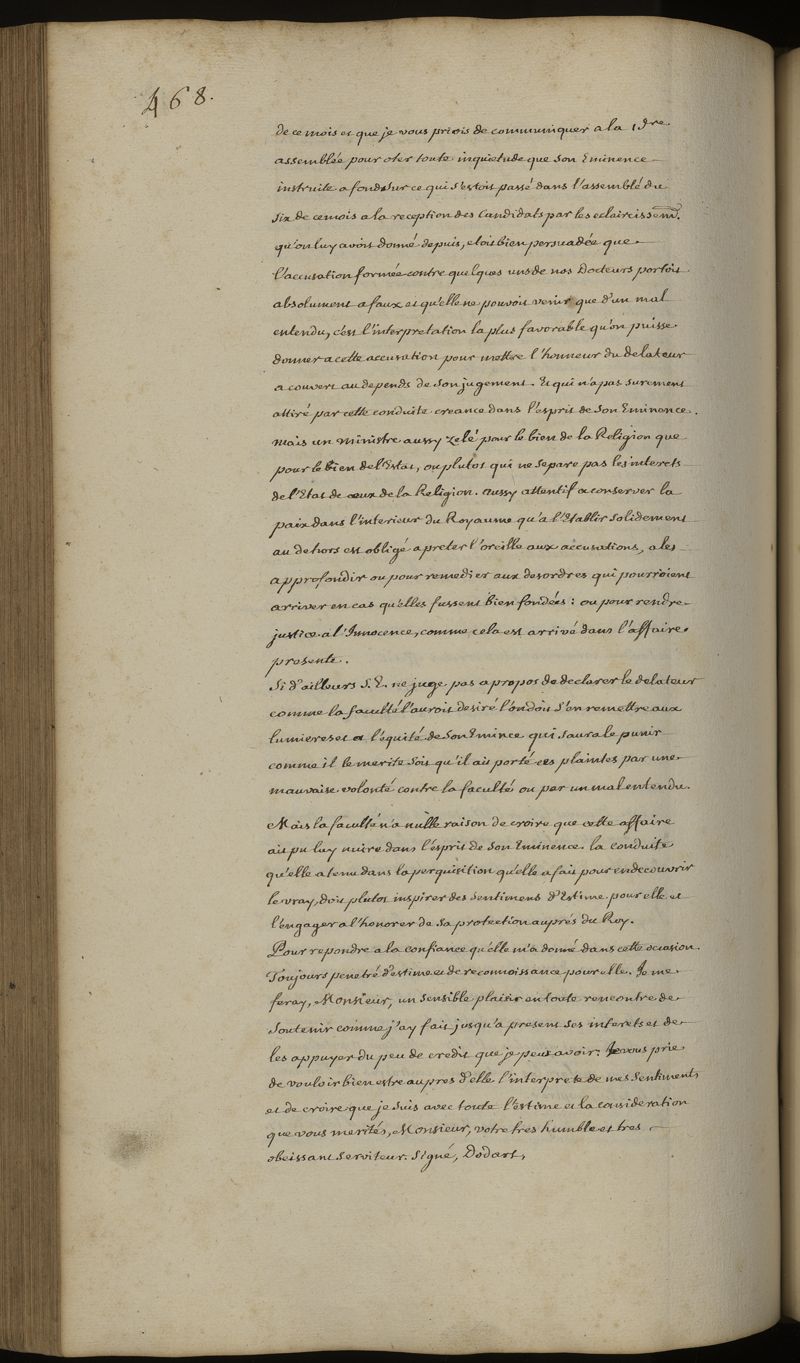 468.
de ce mois et que je vous priois de communiquer a la 1ere
assemblée pour oter toute inquietude que Son Eminence
instruite a fond sur ce qui s'estoit passé dans l'assemblé du
six de ce mois a la reception des Candidats par les eclaircissemts.
qu'on luy avoit donné depuis, etoit bien persuadée que
l'accusation formée contre quelques uns de nos Docteurs portoit
absolument a faux et qu'elle ne pouvoit venir que d'un mal
entendu, c'est l'interpretation la plus favorable qu'on puisse
donner a cette accusation pour mettre l'honneur du delateur
a couvert au depends de son jugement. Et qui n'a pas surement
attiré par cette conduite creance dans l'esprit de Son Eminence.
Mais un Ministre aussy zelé pour le bien de la Religion que
pour le bien de l'Estat, ou plutot qui ne separe pas les interets
de l'Etat de ceux de la Religion. aussy attentif a conserver la
paix dans l'interieur du Royaume qu'a l'Etablir solidement
au dehors est obligé a preter l'oreille aux accusations, a les
approfondir ou pour remedier aux desordres qui pourroient
arriver en cas qu'elles fussent bien fondées: ou pour rendre
justice a l'Innocence, comme cela est arrivé dans l'affaire
presente.
Si d'ailleurs S. E. ne juge pas a propos de declarer le delateur
comme la faculté l'auroit desiré l'on doit s'en remettre aux
lumieres et a l'équité de Son Emince qui saura le punir
comme il le merite soit qu'il ait porté ces plaintes par une
mauvaise volonté contre la faculté, ou par un malentendu.
Mais la faculté n'a nulle raison de croire que cette affaire
ait pu luy nuire dans l'esprit de Son Eminence. la conduite
qu'elle a tenu dans la perquisition qu'elle a fait pour en decouvrir
le vray, doit plutot inspirer des sentimens d'Estime pour elle et
l'engager a l'honorer de sa protection auprés du Roy.
Pour repondre a la confiance qu'elle m'a donné dans cette ocasion
Toujours penetré d'estime et de reconnoissance pour elle. Je me
feray, Monsieur, un sensible plaisir en toute rencontre de
soutenir comme j'ay fait jusqu'a present ses interets et de
les appuyer du peu de credit que je peux avoir. Je vous prie
de vouloir bien estre aupres d'elle l'interprete de mes sentiments
et de croire que je suis avec toute l'estime et la consideration
que vous merités, Monsieur, votre tres humble et tres
obeissant serviteur. Signé, Dodart,